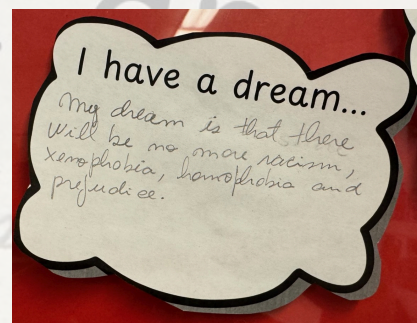 I have a dream...
My dream is that there
will be no more racism,
xenophobia, homophobia and
prejudice.